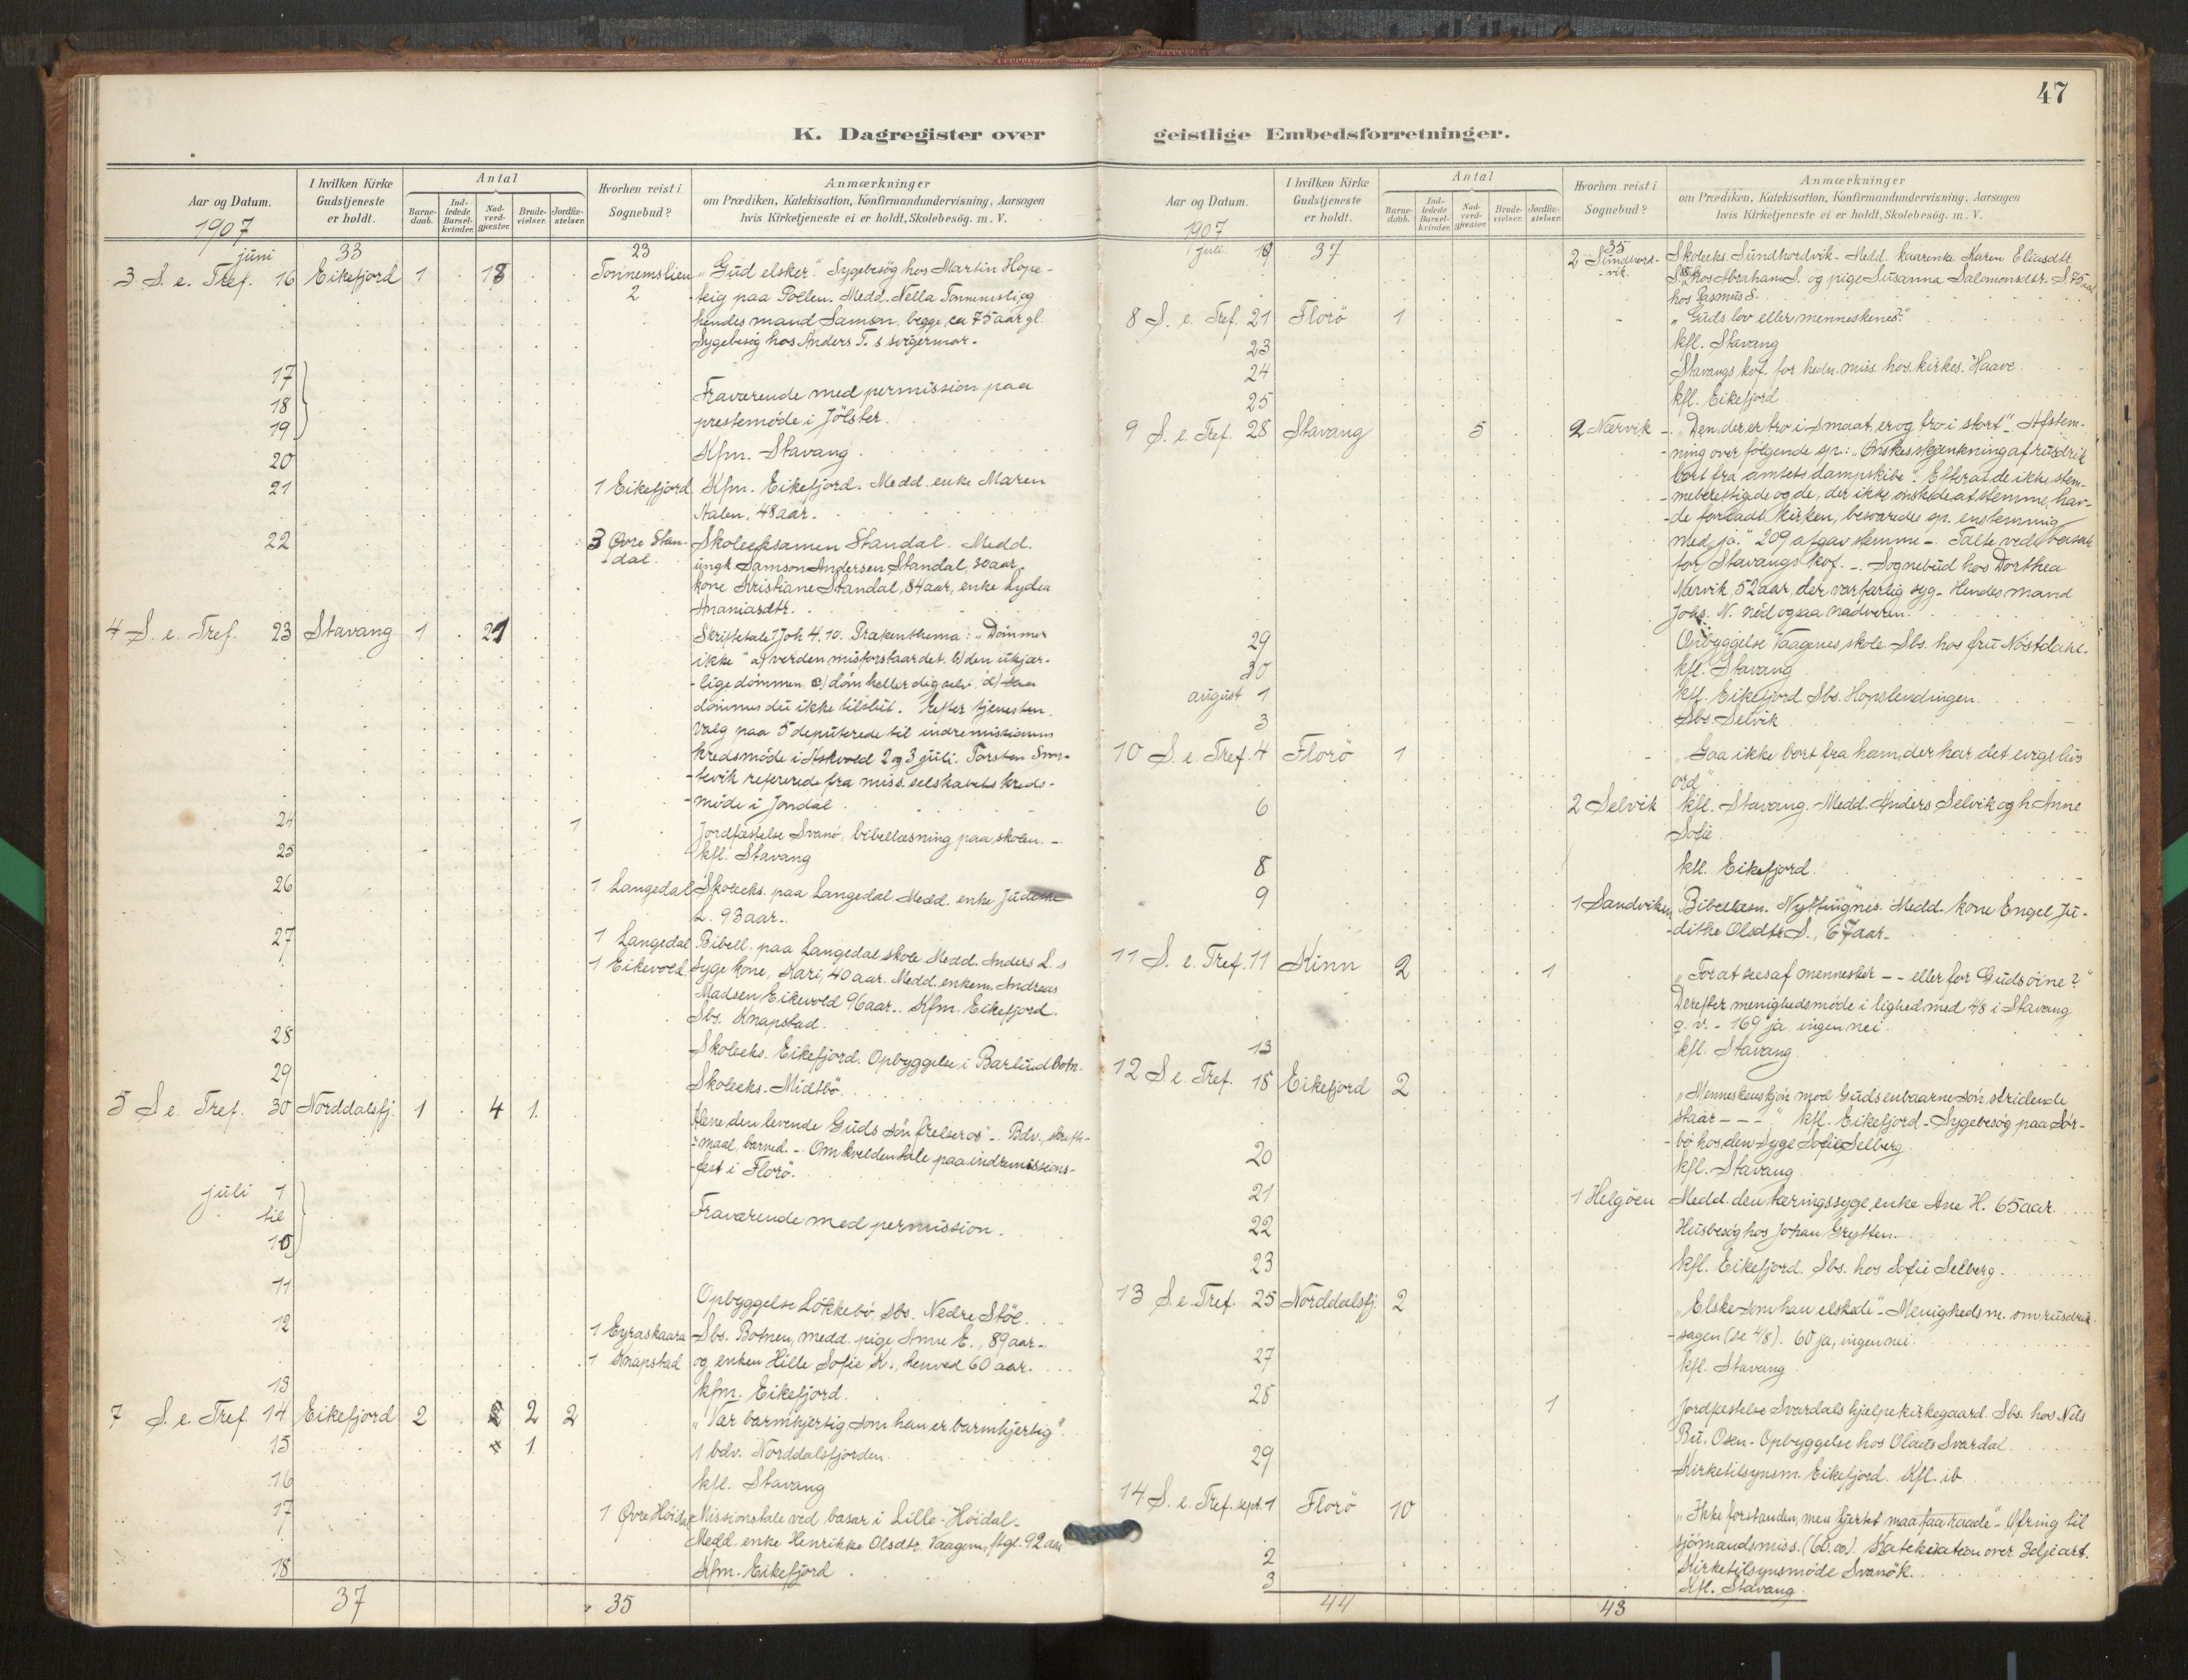 47
K. Dagregister over
Aar og Datum.
I hvilken Kirke Gudstjeneste er holdt.
Antal
Barne-daab.
Ind-ledede Barsel-kvinder.
Nad-verd-gjæster.
Brude-vielser.
Jordfæ-stelser.
Hvorhen reist i Sognebud?
Anmærkninger
om Prædiken, Katekisation, Konfirmandundervisning, Aarsagen
hvis Kirketjeneste ei er holdt, Skolebesög. m. V.
1907
juni 33 23
3 S. e. Tref. 16 Eikefjord 1 18 Tonnemslien „Gud elsker". Sygebesög hos Martin Hope-
2 -teig paa Pollen. Medd. Nella Tonnemsli og
hendes mand Samson, begge ca 75 aar gl.
Sygebesög hos Anders T.s svigermor.
17
18 Fraværende med permission paa
19 prestemöde i Jölster.
20 Kfm. Stavang.
21 1 Eikefjord Kfm. Eikefjord. Medd. enke Maren
Stalen, 48 aar.
22 3 Övre Stan-dal. Skoleeksamen Standal. Medd.
ungk Samson Andersen Standal, 30 aar,
kone Kristiane Standal, 84 aar, enke Lydia
Ananiasdtr.
4 S. e. Tref. 23 Stavang 1 21 Skriftetale 1 Joh 4.10. Prækenthema: „Dömmer
ikke" a) verden misforstaar det. b) den ukjær-
-lige dömmen c) döm heller dig selv. d) saa
dömmes du ikke tilslut. Efter tjenesten
valg paa 5 deputerede til indremissionens
kredsmöde i Askvold 2 og 3 juli. Torsten Sun-
-tevik refererede fra miss. selskabets kreds-
-möde i Jondal.
24 1 Jordfæstelse Svanö, bibellæsning paa skolen. -
25 kfl. Stavang
26 1 Langedal Skoleeks. paa Langedal Medd. enke Judithe
L. 93 aar.
27 1 Langedal Bibell. paa Langedal skole. Medd. Anders L.s
1 Eikevold syge kone, Kari, 40 aar. Medd. enkem. Andreas
Madsen Eikevold 96 aar. Kfm. Eikefjord.
Sbs. Knapstad.
28 Skoleeks. Eikefjord. Opbyggelse i Barlindbotn.
29 Skoleeks. Midtbö.
5 S. e. Tref. 30 Norddalsfj. 1 4 1 Alene den levende Guds sön frelser os". Bdv., skrifte-
-maal, barned. - Om kvelden tale paa indremissions-
-fest i Florö.
juli 1
til Fraværende med permission.
10
11 Opbyggelse Lökkebö, Sbs. Nedre Stöl.
12 1 Eyraskaara Sbs. Botnen, medd. pige Anne E., 89 aar
1 Knapstad og enken Hille Sofie K., henved 60 aar.
13 kfm. Eikefjord.
7 S. e. Tref. 14 Eikefjord 2 2 2 „Vær barmhjertig som han er barmhjertig".
15 4 1 1 bdv. Norddalsfjorden.
16 kfl. Stavang
17 1 Övre Höidal Missionstale ved basar i Lille-Höidal.
Medd. enke Henrikke Olsdtr. Vaagene, ftgl. 92 aar
18 Kfm. Eikefjord
37 35
geistlige Embedsforretninger.
Aar og Datum.
I hvilken Kirke Gudstjeneste er holdt.
Antal
Barne-daab.
Ind-ledede Barsel-kvinder.
Nad-verd-gjæster.
Brude-vielser.
Jordfæ-stelser.
Hvorhen reist i Sognebud?
Anmærkninger
om Prædiken, Katekisation, Konfirmandundervisning, Aarsagen
hvis Kirketjeneste ei er holdt, Skolebesög. m. V.
1907
juli 19 37 35
2 Sundhord-vik. Skoleeks. Sundhordvik. Medd. kaarenke Karen Eliasdtr.
hos Abraham S. og pige Susanna Salomonsdtr. S. 75 aar
hos Rasmus S.
8 S. e. Tref. 21 Florö 1 „Guds lov eller menneskenes?"
23 kfl. Stavang
24 Stavangs kof. for hedn. miss hos kirkes. Haave
25 kfl. Eikefjord
9 S. e. Tref. 28 Stavang 5 2 Nærvik - „Den, der er tro i smaat, er og tro i stort". Afstem-
-ning over fölgende sp.: „Önskes skjænkning af rusdrik
bort fra amtets dampskibe". Efterat de ikke stem-
-meberettigede og de, der ikke önskede at stemme, hav-
-de forladt kirken, besvaredes sp. enstemmig
med „ja". 209 afgav stemme -. Talte ved basar
for Stavangs kof. -. Sognebud hos Dorthea
Nærvik, 52 aar, der var farlig syg. Hendes mand
Johs. N. nöd ogsaa nadveren.
29 Opbyggelse Vaagenes skole Sbs. hos fru Nöstdahl.
30 kfl. Stavang
august 1 kfl. Eikefjord Sbs. Hopslendingen.
3 Sbs. Selvik
10 S. e. Tref. 4 Florö 1 „Gaa ikke bort fra ham, der har det evige livs
ord".
6 2 Selvik kfl. Stavang. Medd. Anders Selvik og h. Anne
Sofie.
8 kfl. Eikefjord.
9 1 Sandviken Bibellæsn. Nyttingnes. Medd. kone Engel Ju-
-dithe Olsdtr. S., 67 aar.
11 S. e. Tref. 11 Kinn 2 1 „For at sees af mennesker -- eller for Guds öine?"
Derefter menighedsmöde i lighed med 4/8 i Stavang
q. v. - 169 ja, ingen nei.
13 kfl. Stavang.
12 S. e. Tref. 18 Eikefjord 2 „Menneskens sjön mod Guds enbaarne sön stridende
staar - - - " kfl. Eikefjord. Sygebesög paa Sör-
-bö hos den syge Sofie Selberg.
20 kfl. Stavang
21 1 Helgöen Medd. den tæringssyge enke Ane H. 65 aar.
22 Husbesög hos Johan Grytten.
23 kfl. Eikefjord. Sbs. hos Sofie Selberg.
13 S. e. Tref. 25 Norddalsfj. 2 „Elske som han elskede". Menighedsm. om rusdrik-
-sagen (se 4/8). 60 ja, ingen nei.
27 kfl. Stavang
28 1 Jordfæstelse Svardals hjælpekirkegaard. Sbs. hos Nils
Bu. Osen. Opbyggelse hos Olaus Svardal.
29 Kirketilsynsm. Eikefjord. Kfl. ib.
14 S. e. Tref. sept. 1 Florö 10 „Ikke forstanden, men hjertet maa faa raade". Ofring til
sjömandsmiss. (60.00). Katekisation over 3dje art.
2 Kirketilsynsmöde Svanö k.
3 Kfl. Stavang.
44 43